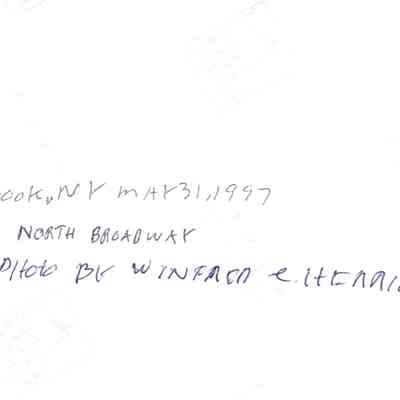 ook, NY MAY 31, 1997
NORTH BROADWAY
PHOTO BY WINFRED C. HERRI